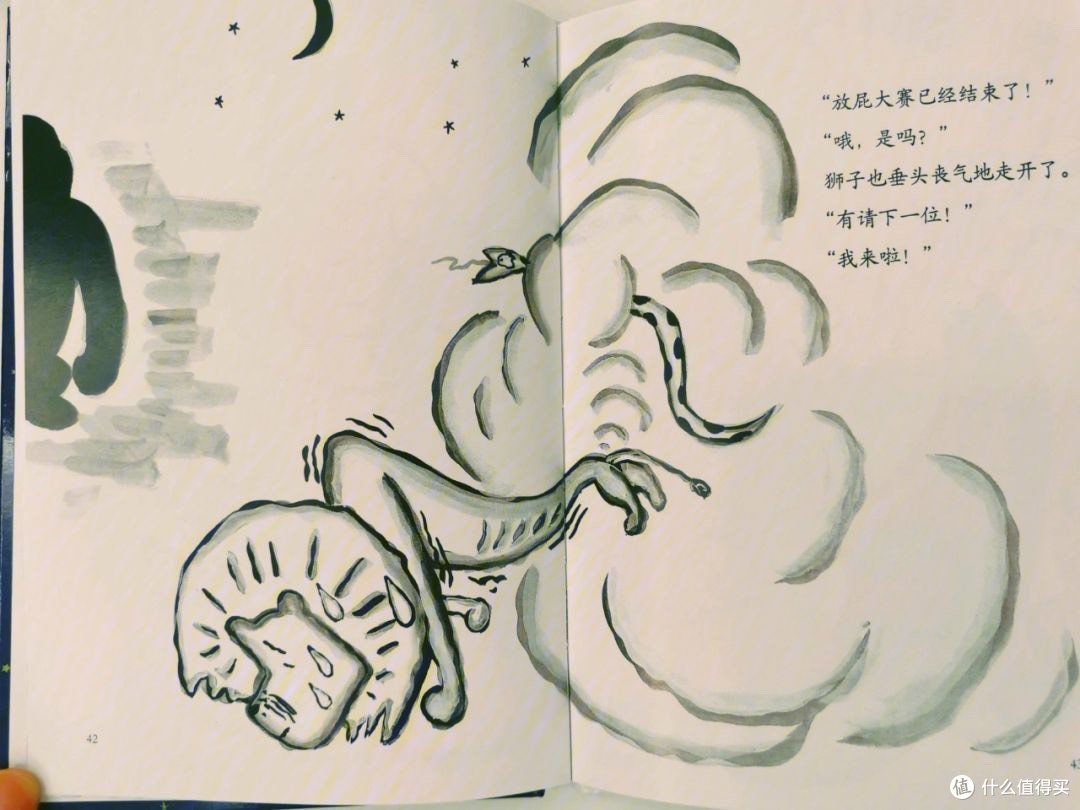 “放屁大赛已经结束了！”
“哦，是吗？”
狮子也垂头丧气地走开了。
“有请下一位！”
“我来啦！”
42
43
值 什么值得买